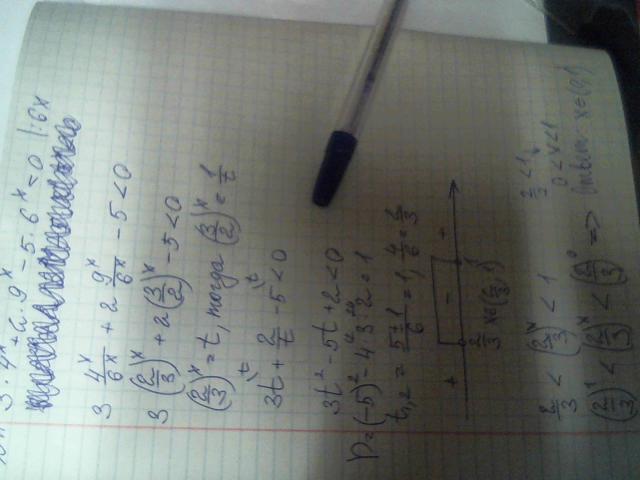 3·4ˣ+2·9ˣ-5·6ˣ<0 |:6ˣ
3 4ˣ/6ˣ + 2 9ˣ/6ˣ - 5<0
3(2/3)ˣ + 2(3/2)ˣ - 5<0
(2/3)ˣ = t, тогда (3/2)ˣ = 1/t
3t + 2/t - 5 <0
3t² - 5t + 2 <0
D=(-5)² - 4·3·2 = 1
t₁,₂ = (5±1)/6 = 1, 4/6 = 2/3
+ - +
2/3 x∈(2/3, 1) 1
2/3 < (2/3)ˣ < 1
(2/3)¹ < (2/3)ˣ < (2/3)⁰ =>
2/3 <1,
0<x<1
Ответ: x∈(0;1)